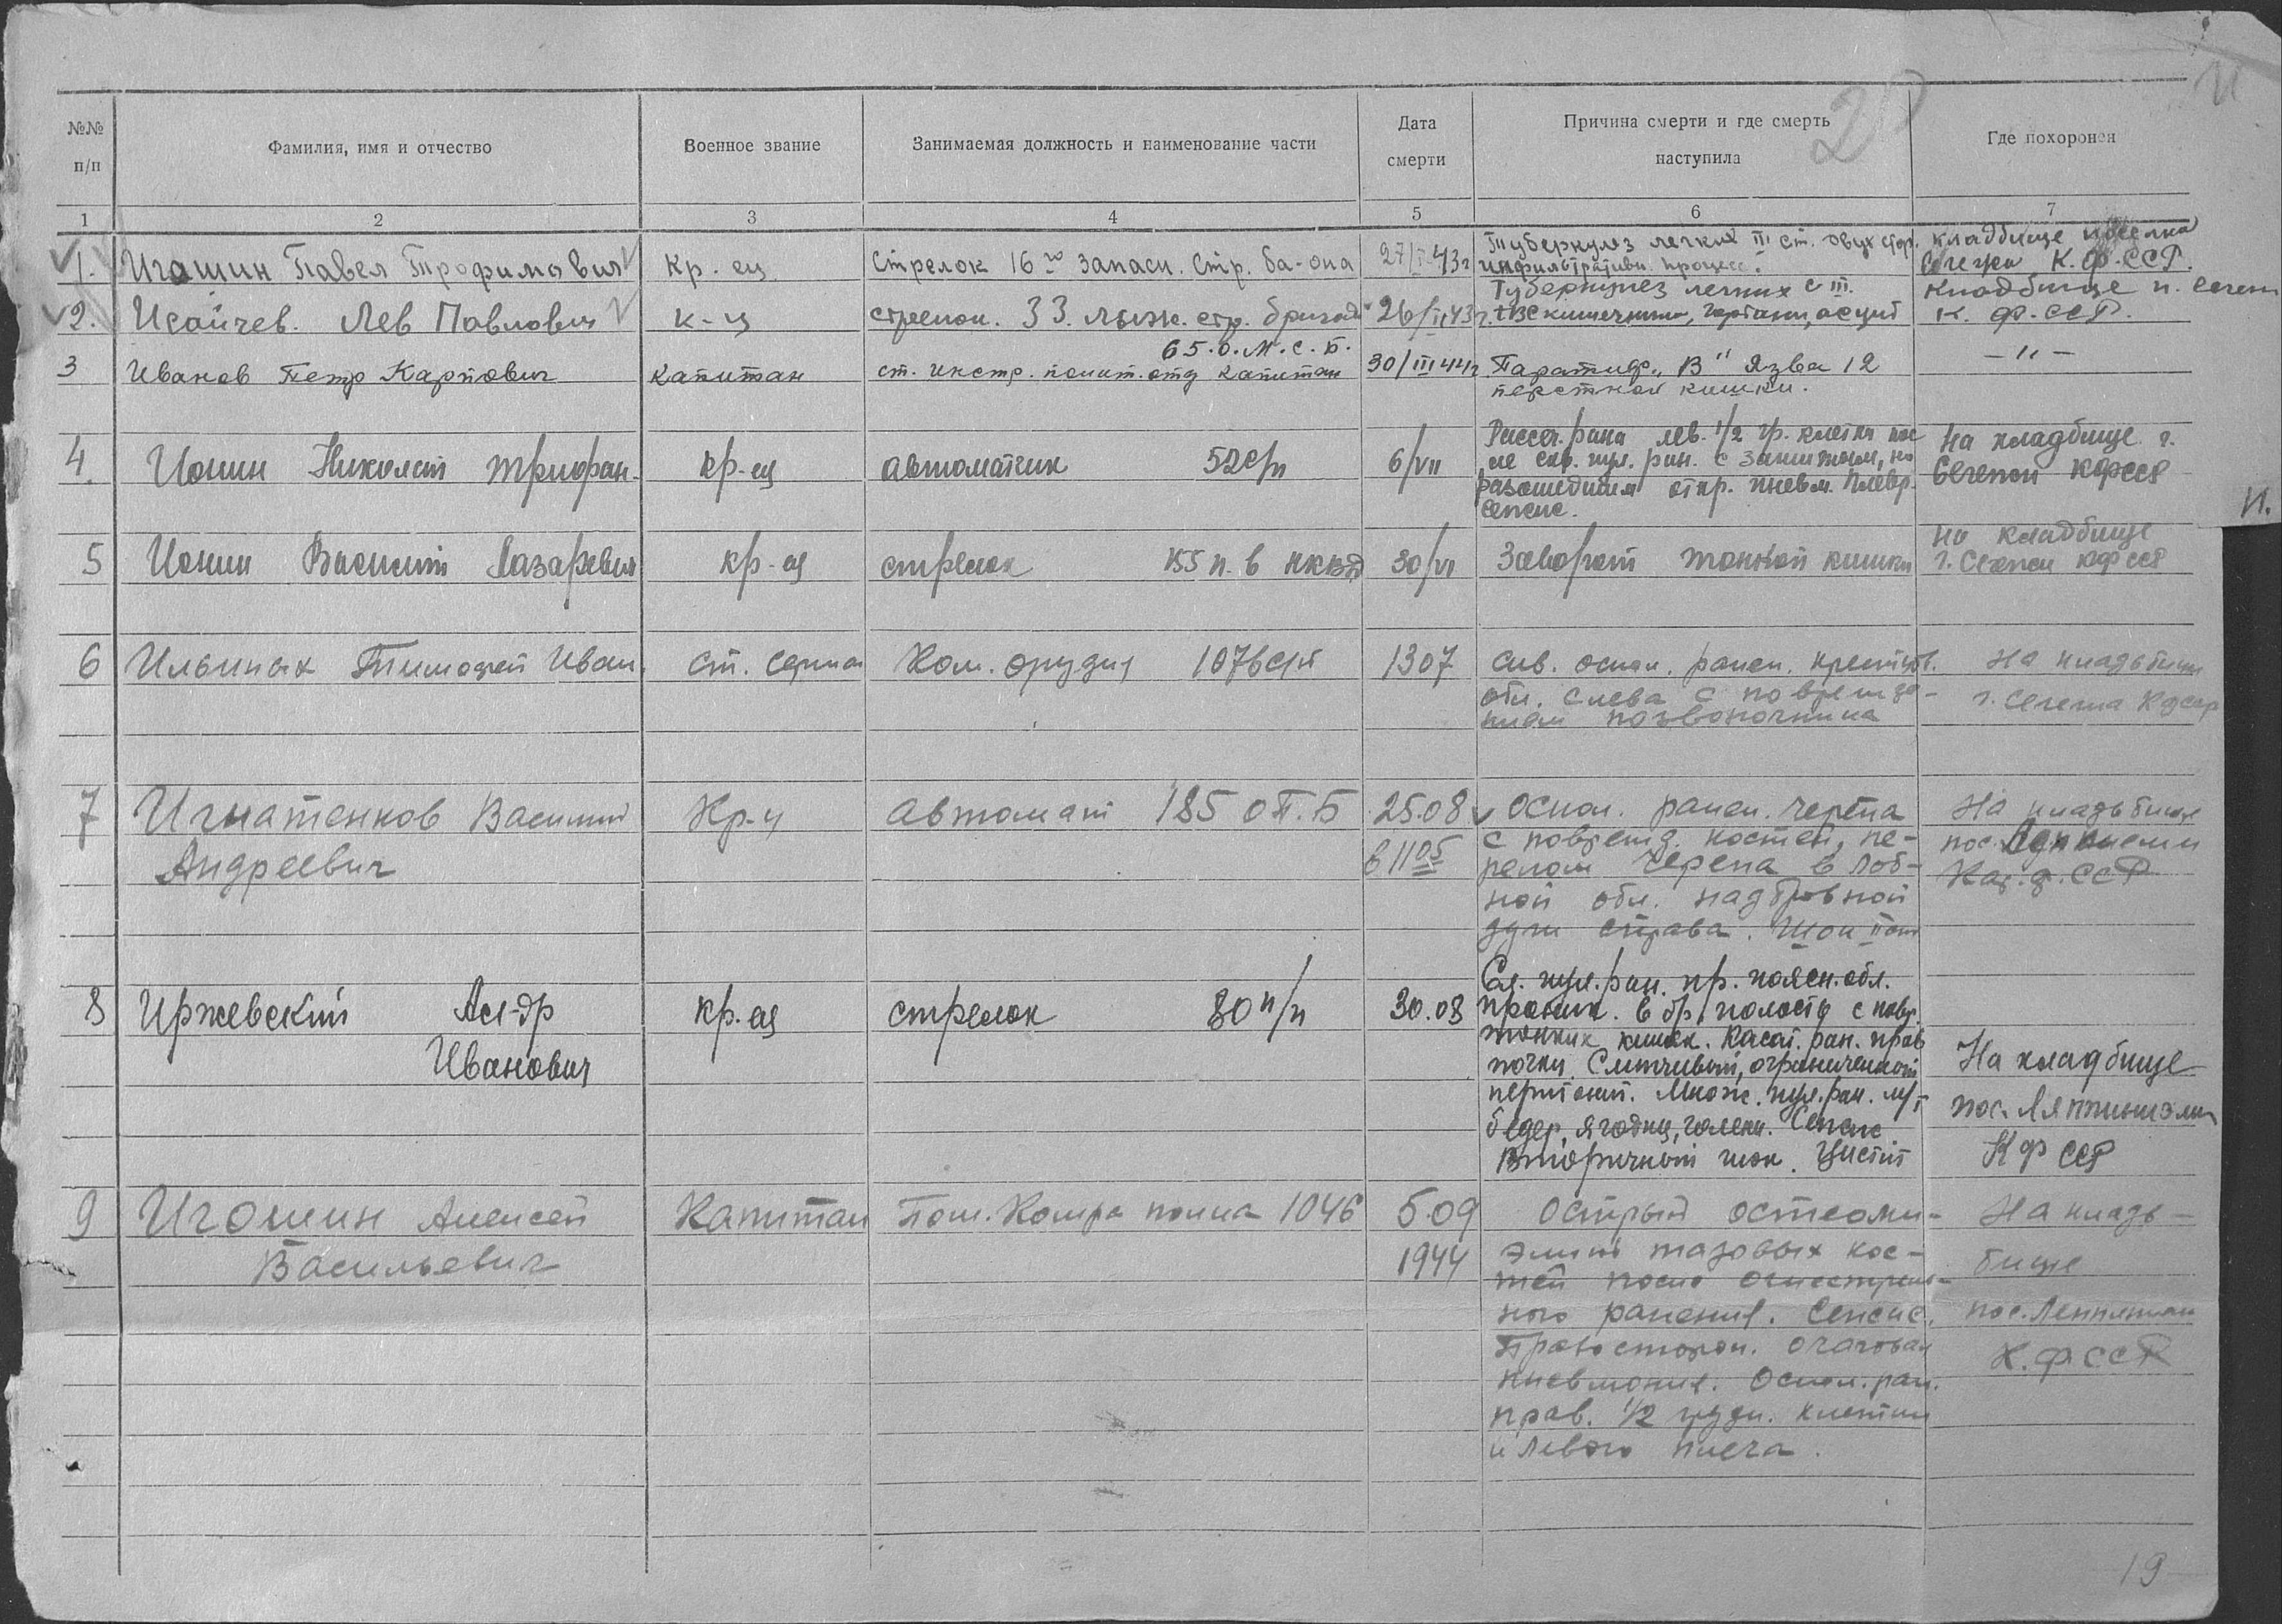 20
И
№№ п/п
Фамилия, имя и отчество
Военное звание
Занимаемая должность и наименование части
Дата смерти
Причина смерти и где смерть наступила
Где похоронен
1 2 3 4 5 6 7
1. Игошин Павел Трофимович
Кр-ец
Стрелок 16го запасн. Стр. ба-она
27/ 43г
Туберкулез легких III ст. двухстор.
инфильтративн. процесс.
кладбище поселка
Сегежа К.Ф.ССР.
2. Исайчев. Лев Павлович
К-ц
стрелок. 33. лыжн. стр. бригад
26/II 43г.
Туберкулез легких С III.
ТВС кишечника, гортани, асцит
Кладбище п. Сегеж
К. Ф. ССР.
3 Иванов Петр Карпович
Капитан
65.О.М.С.Б.
ст. инстр. полит. отд капитан
30/III 44г
Паратиф „В" Язва 12
перстной кишки.
— " —
4. Ионин Николай Трифон.
кр-ец
автоматчик 52с/п
6/VII
Рассеч. рана лев. 1/2 гр. клетки пос
ле скв. пул. ран. с зашитым, но
разошедшим откр. пневм. Плевр.
Сепсис.
На кладбище г.
Сегежи КФССР
И.
5 Ионин Василий Лазаревич
кр-ец
стрелок 155 п. в НКВД
30/VI
Заворот тонкой кишки
На кладбище
г. Сегежи КФССР
6 Ильиных Тимофей Иван.
ст. сержан
Ком. орудия 1076с/п
1307
Сив. оскол. ранен. крестцов.
обл. слева с поврежде-
нием позвоночника
На кладбищ
г. Сегежа Кфсср
7 Игнатенков Василий
Андреевич
Кр-ц
автомат 185 оТ.Б
25.08
в 11 05
Оскол. ранен. черепа
с поврежд. костей, пе-
релом черепа в лоб-
ной обл. надбровной
дуги справа. Шок II ст
На кладбище
пос.
Кар.ф.ССР
8 Иржевский Ал-др
Иванович
кр-ец
стрелок 80 п/п
30.08
Сл. пул. ран. пр. поясн. обл.
проник. в бр. полость с повр.
тонких кишек. Касат. ран. прав
почки. Слипчивый, ограниченный
перитонит. Множ. пул. ран. м/т
бедер, ягодиц, голени. Сепсис
Вторичный шок. Цистит
На кладбище
пос. Ляппинэлин
КФ ССР
9 Игошин Алексей
Васильевич
Капитан
Пом. Комра полка 1046
5.09
1944
Острый остеоми-
элит тазовых кос-
тей после огнестрель-
ного ранения. Сепсис.
Правосторон. очаговая
пневмония. Оскол. ран.
прав. 1/2 грудн. клетки
и левого плеча.
На кладь-
бище
пос.
К. Ф ССР
19